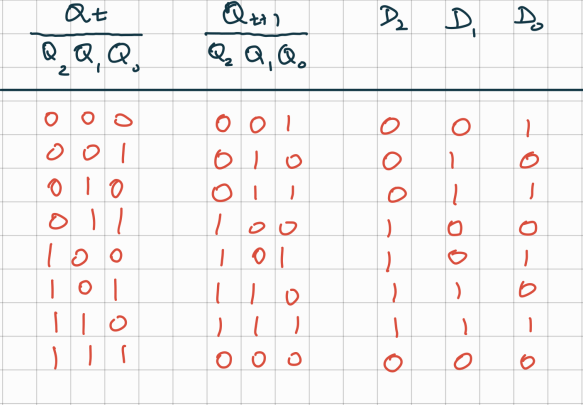 Qt Qt+1 D₂ D₁ D₀
Q₂ Q₁ Q₀ Q₂ Q₁ Q₀
0 0 0 0 0 1 0 0 1
0 0 1 0 1 0 0 1 0
0 1 0 0 1 1 0 1 1
0 1 1 1 0 0 1 0 0
1 0 0 1 0 1 1 0 1
1 0 1 1 1 0 1 1 0
1 1 0 1 1 1 1 1 1
1 1 1 0 0 0 0 0 0